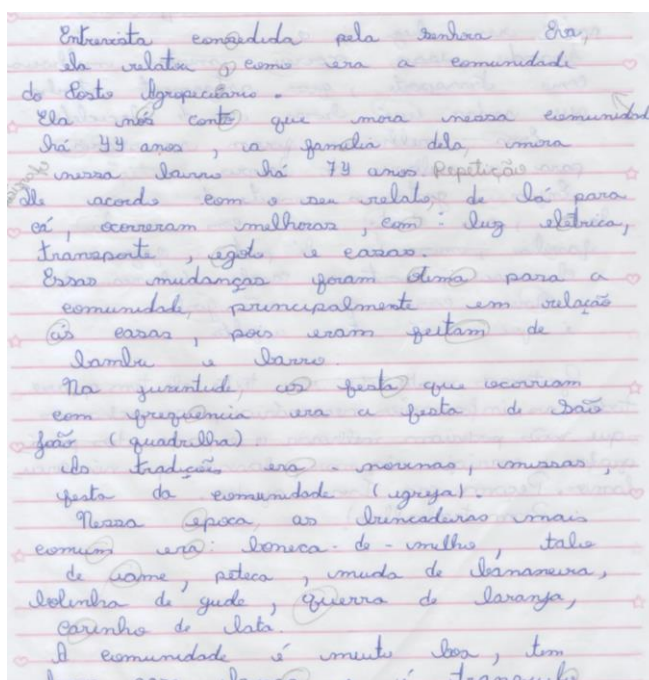 Entrevista consedida pela senhora Eva,
ela relatou como era a comunidade
do Posto Agropecuário.
Ela nós conto que mora nessa comunidad
há 44 anos, ia familia dela mora
nessa bairro há 74 anos Repetição
De acordo com o seu relato, de lá para
cá, ocorreram melhoras, com: luz elétrica,
transporte, egoto e casas.
Essas mudanças foram otima para a
comunidade, principalmente em relação
ás casas, pois eram feitam de
bambu e barro.
Na juventude, as festa que ocorriam
com frequência era a festa de São
João (quadrilha)
As tradições era - novenas, missas,
festa da comunidade (igreja).
Nessa epoca, as brincadeiras mais
comum era: boneca-de-milho, talo
de iame, peteca, muda de bananeira,
bolinha de gude, querra de laranja,
carinho de lata.
A comunidade é muito boa, tem
tranquilo